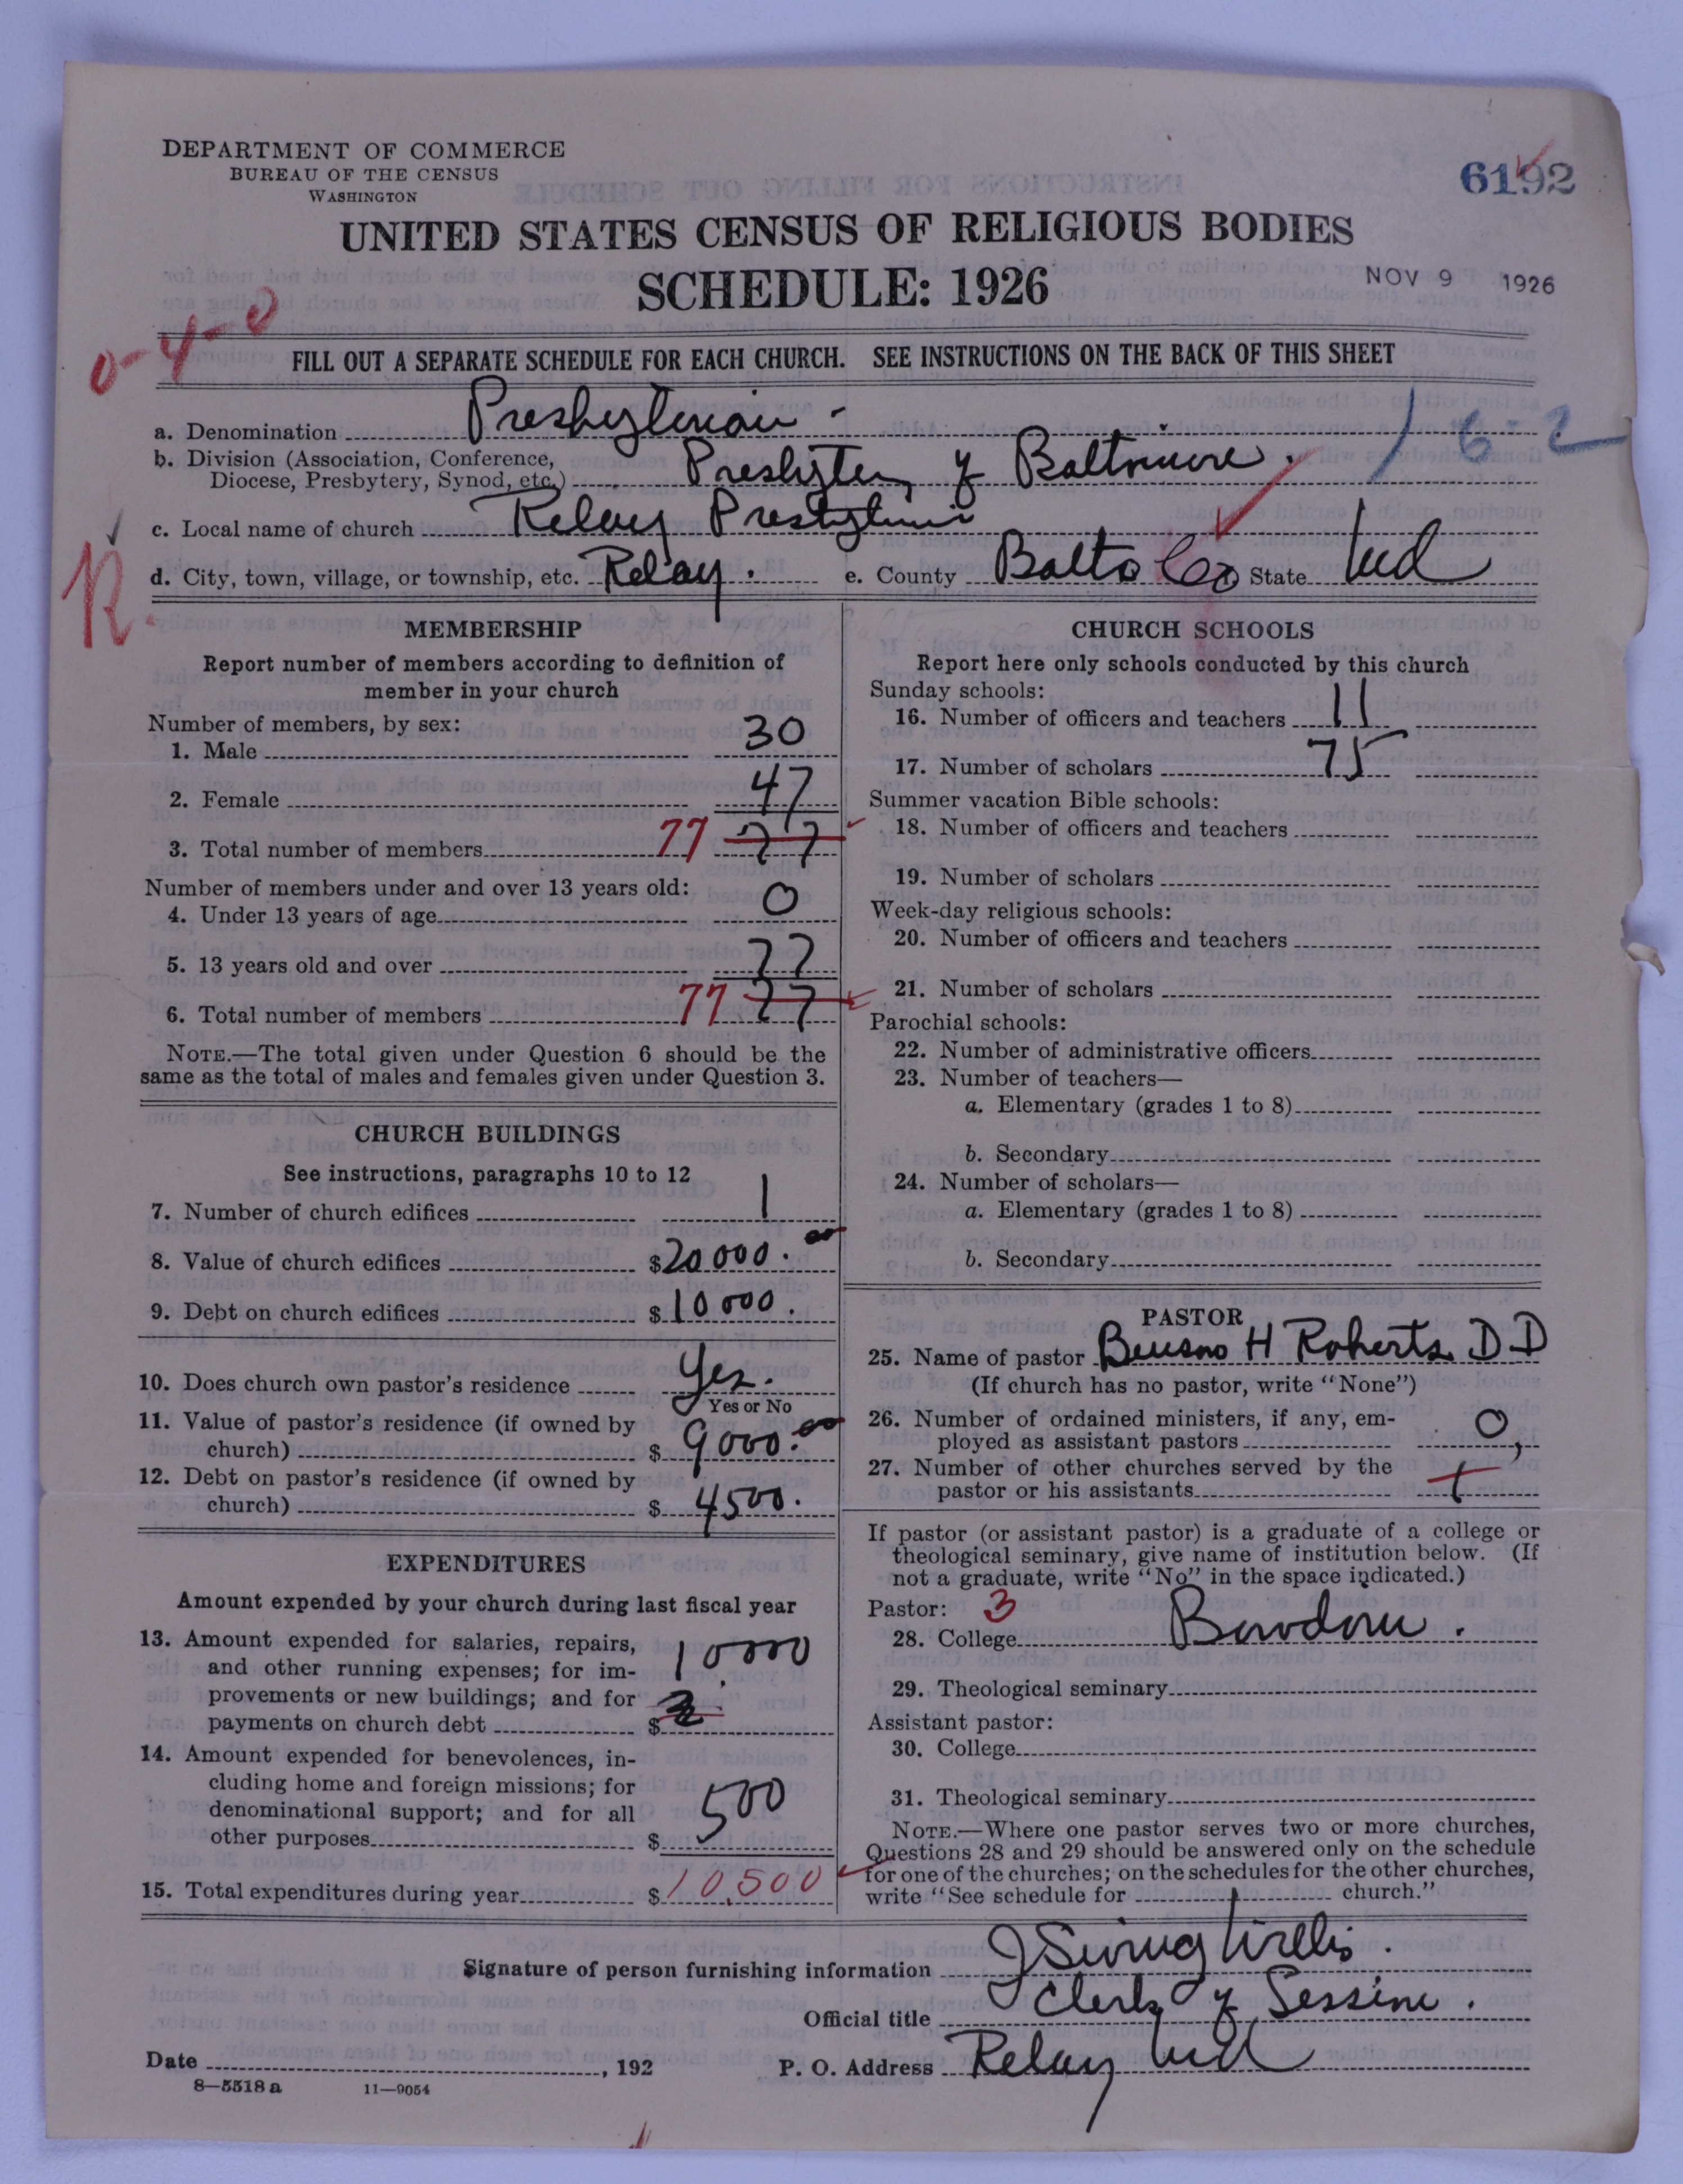 DEPARTMENT OF COMMERCE
BUREAU OF THE CENSUS
WASHINGTON
6192
UNITED STATES CENSUS OF RELIGIOUS BODIES
SCHEDULE: 1926
NOV 9 1926
0-4-0
FILL OUT A SEPARATE SCHEDULE FOR EACH CHURCH. SEE INSTRUCTIONS ON THE BACK OF THIS SHEET
a. Denomination Presbyterian -
16-2
b. Division (Association, Conference,
Diocese, Presbytery, Synod, etc.) Presbytery of Baltimore.
c. Local name of church Relay Presbyterian
R.
d. City, town, village, or township, etc. Relay. e. County Balto Co State Md
MEMBERSHIP
Report number of members according to definition of
member in your church
Number of members, by sex:
1. Male 30
2. Female 47
3. Total number of members 77 77
Number of members under and over 13 years old:
4. Under 13 years of age 0
5. 13 years old and over 77
6. Total number of members 77 77
NOTE.—The total given under Question 6 should be the
same as the total of males and females given under Question 3.
CHURCH BUILDINGS
See instructions, paragraphs 10 to 12
7. Number of church edifices 1
8. Value of church edifices $20000.00
9. Debt on church edifices $10000.
10. Does church own pastor's residence Yes.
Yes or No
11. Value of pastor's residence (if owned by
church) $ 9000.00
12. Debt on pastor's residence (if owned by
church) $ 4500.
EXPENDITURES
Amount expended by your church during last fiscal year
13. Amount expended for salaries, repairs,
and other running expenses; for im-
provements or new buildings; and for
payments on church debt $ 10000
14. Amount expended for benevolences, in-
cluding home and foreign missions; for
denominational support; and for all
other purposes $ 500
15. Total expenditures during year $ 10,500
CHURCH SCHOOLS
Report here only schools conducted by this church
Sunday schools:
16. Number of officers and teachers 11
17. Number of scholars 75
Summer vacation Bible schools:
18. Number of officers and teachers
19. Number of scholars
Week-day religious schools:
20. Number of officers and teachers
21. Number of scholars
Parochial schools:
22. Number of administrative officers
23. Number of teachers—
a. Elementary (grades 1 to 8)
b. Secondary
24. Number of scholars—
a. Elementary (grades 1 to 8)
b. Secondary
PASTOR
25. Name of pastor H Roberts D D
(If church has no pastor, write "None")
26. Number of ordained ministers, if any, em-
ployed as assistant pastors 0
27. Number of other churches served by the
pastor or his assistants
If pastor (or assistant pastor) is a graduate of a college or
theological seminary, give name of institution below. (If
not a graduate, write "No" in the space indicated.)
Pastor: 3
28. College Bowdoin.
29. Theological seminary
Assistant pastor:
30. College
31. Theological seminary
NOTE.—Where one pastor serves two or more churches,
Questions 28 and 29 should be answered only on the schedule
for one of the churches; on the schedules for the other churches,
write "See schedule for church."
Signature of person furnishing information J Ewing Willis.
Official title Clerk of Session.
Date , 192 P. O. Address Relay Md
8—5518 a 11—9054